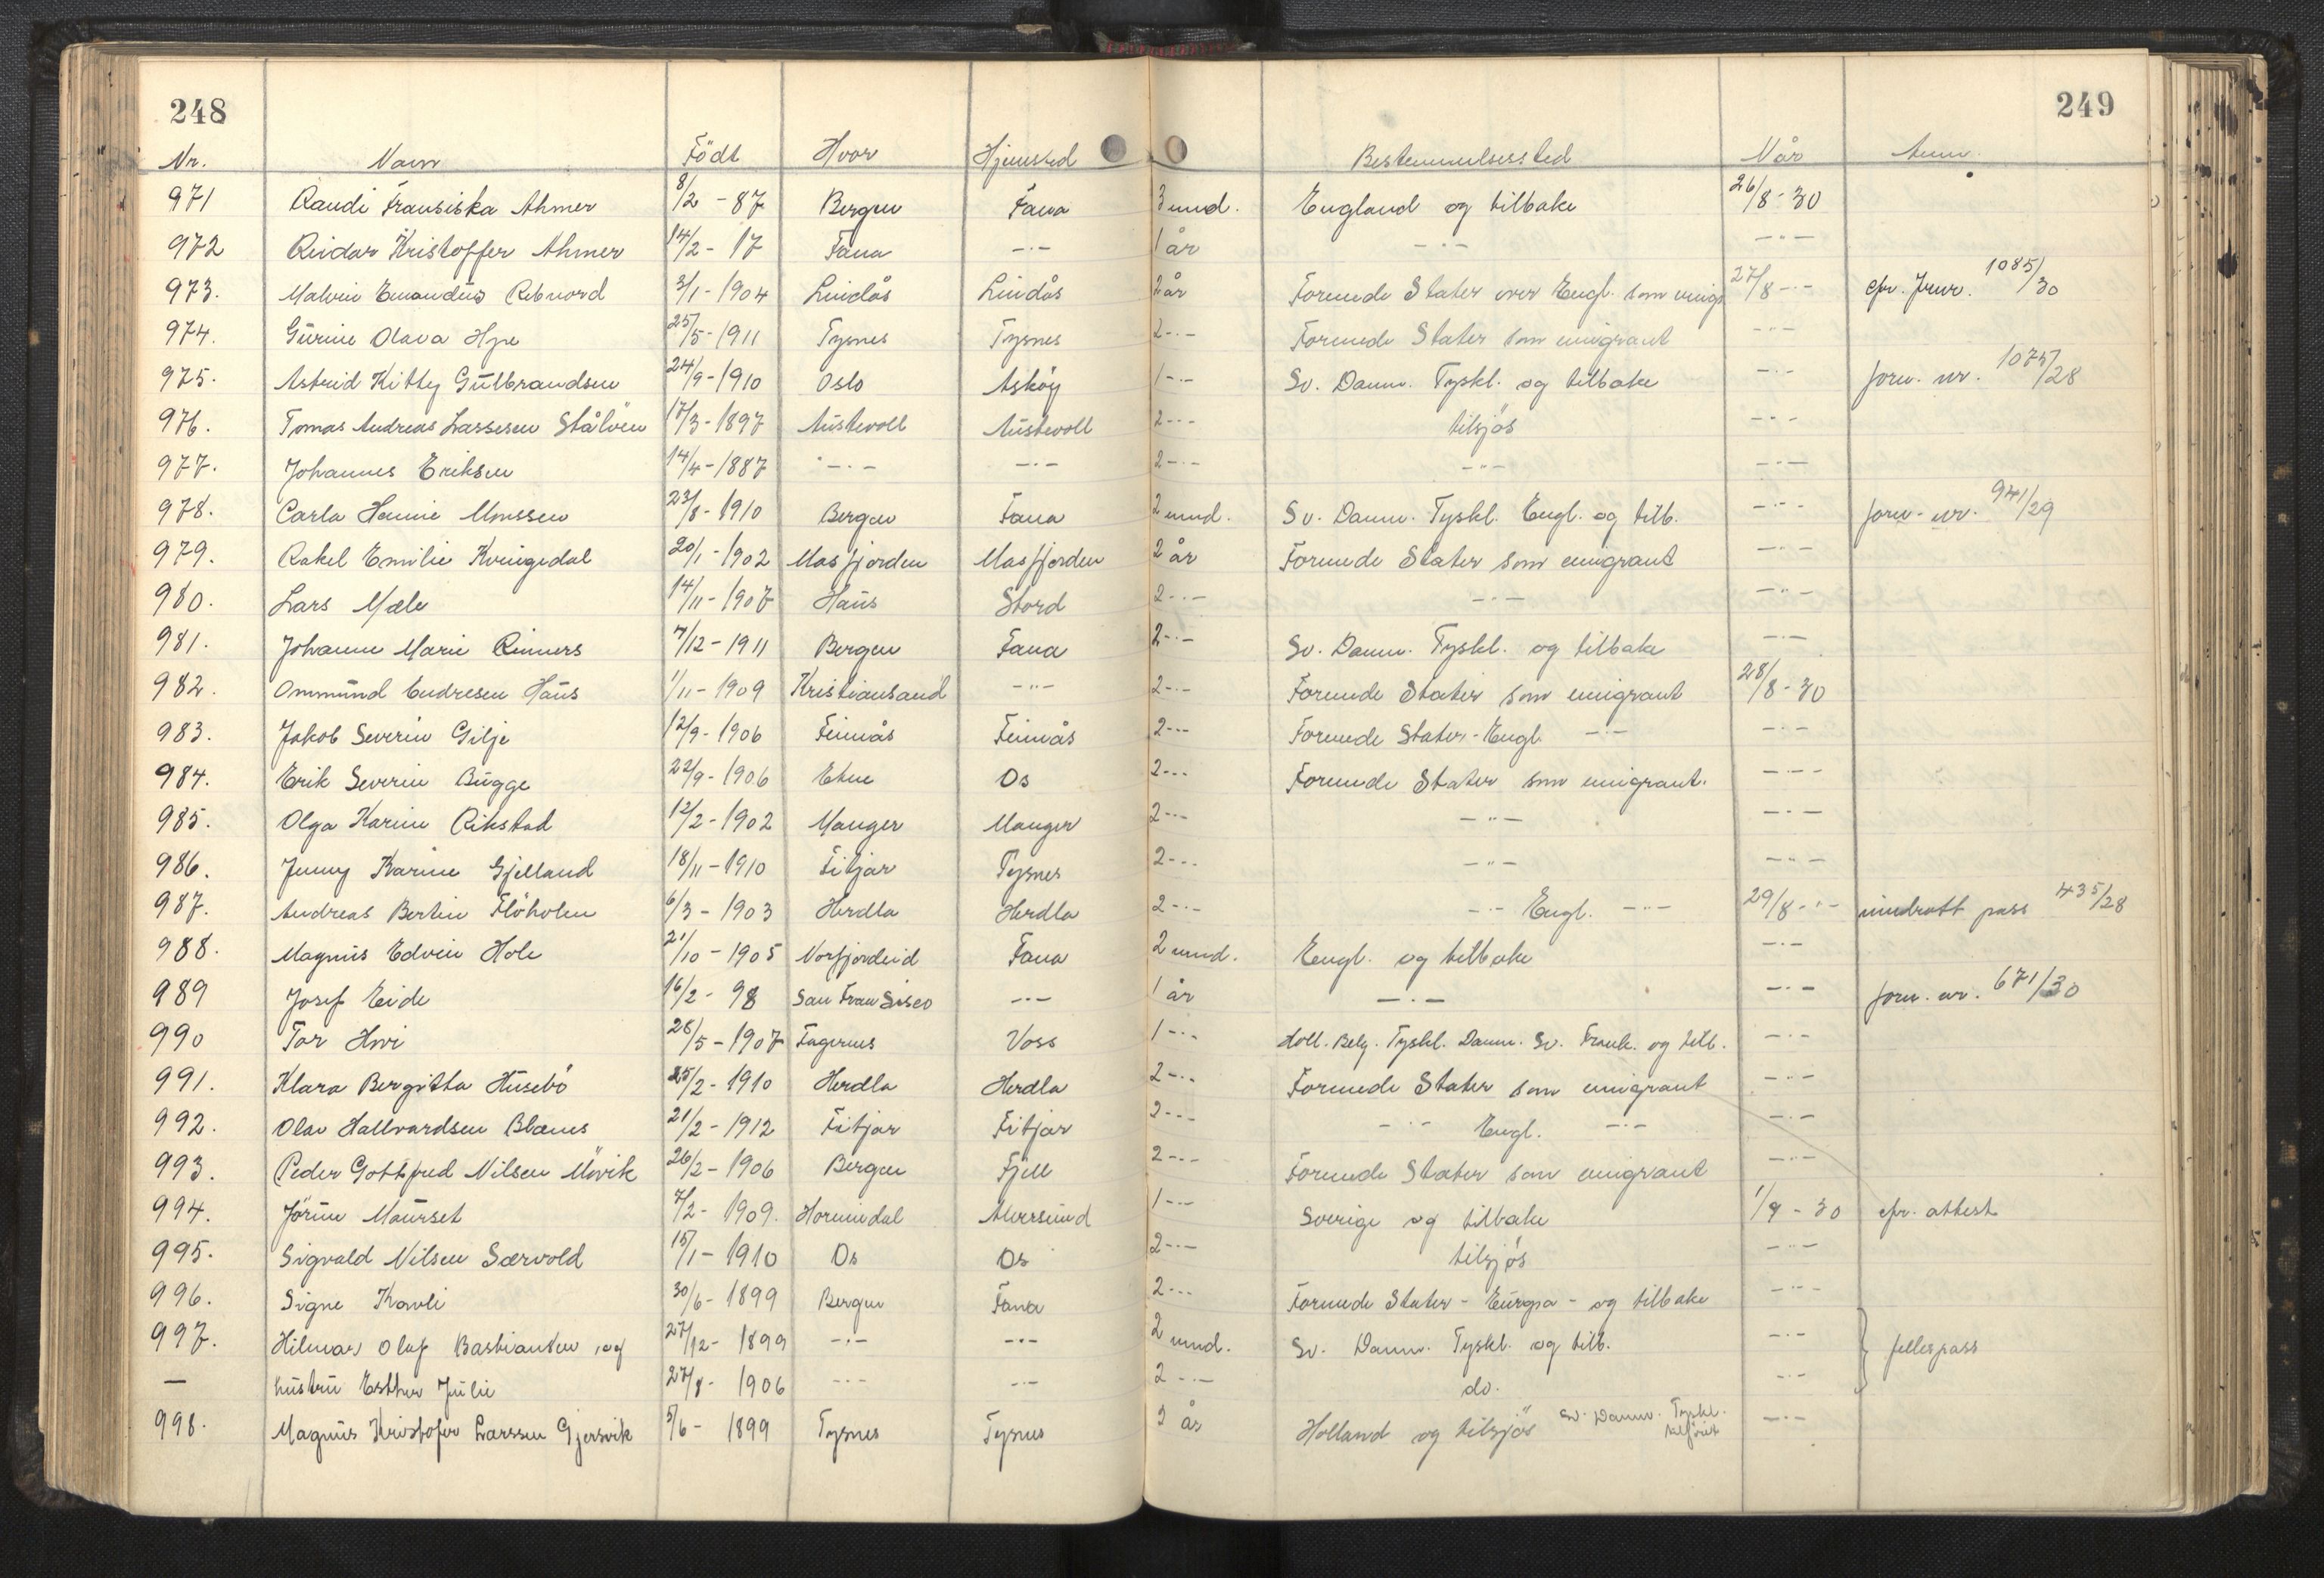 248 249
Nr. Navn Født Hvor Hjemsted Bestemmelsessted Når Anm.
971 Randi Fransiska Ahmer 8/2 - 87 Bergen Fana 3 mnd. England og tilbake 26/8 - 30
972 Reidar Kristoffer Ahmer 14/2 - 17 Fana -"- 1 år -"- -"-
973. Malvin Emandus Rebnord 3/1 - 1904 Lindås Lindås 2 år Forenede Stater over Engl. som emigr 27/8 -"- cfr. Jrnr. 1085/30
974. Gurine Olava Hye 25/5 - 1911 Tysnes Tysnes 2 -"- Forenede Stater som emigrant -"-
975. Astrid Kitty Gulbrandsen 24/9 - 1910 Oslo Askøy 1 -"- Sv. Danm. Tyskl. og tilbake -"- forn. nr. 1075/28
976. Tomas Andreas Lassesen Stålvien 17/3 - 1897 Austevoll Austevoll 2 -"- tilsjøs -"-
977. Johannes Eriksen 14/4 - 1887 -"- -"- 2 -"- -"- -"-
978. Carla Hennie Monssen 23/8 - 1910 Bergen Fana 2 mnd. Sv. Danm. Tyskl. Engl. og tilb. -"- forn. nr. 941/29
979. Rakel Emilie Kvingedal 20/1 - 1902 Masfjorden Masfjorden 2 år Forenede Stater som emigrant -"-
980. Lars Mæle 14/11 - 1907 Haus Stord 2 -"- -"- -"-
981. Johanne Marie Rimmers 7/12 - 1911 Bergen Fana 2 -"- Sv. Danm. Tyskl. og tilbake -"-
982. Ommund Endresen Haus 1/11 - 1909 Kristiansand -"- 2 -"- Forenede Stater som emigrant 28/8 - 30
983. Jakob Severin Gilje 12/9 - 1906 Finnås Finnås 2 -"- Forenede Stater - Engl. -"- -"-
984. Erik Severin Bugge 22/9 - 1906 Etne Os 2 -"- Forenede Stater som emigrant. -"-
985. Olga Karine Rikstad 12/2 - 1902 Manger Manger 2 -"- -"- -"-
986. Jenny Karine Gjelland 18/11 - 1910 Fitjar Tysnes 2 -"- -"- -"-
987. Andreas Bertin Fløholm 6/3 - 1903 Herdla Herdla 2 -"- -"- Engl. -"- 29/8 -"- inndratt pass 435/28
988. Magnus Edvin Hole 21/10 - 1905 Norfjordeid Fana 2 mnd. Engl. og tilbake -"-
989 Josef Eide 16/2 - 98 San Fransisco -"- 1 år -"- -"- forn. nr. 671/30
990 Tor Hovi 28/5 - 1907 Fagernes Voss 1 -"- Holl. Belg. Tyskl. Danm. Sv. Frank. og tilb. -"-
991. Klara Bergitta Husebø 25/2 - 1910 Herdla Herdla 2 -"- Forenede Stater som emigrant -"-
992. Olav Hallvardsen Blænes 21/2 - 1912 Fitjar Fitjar 2 -"- -"- Engl. -"- -"-
993. Peder Gottfred Nilsen Møvik 26/2 - 1906 Bergen Fjell 2 -"- Forenede Stater som emigrant -"-
994. Jørine Maurset 7/2 - 1909. Hornindal Alversund 1 -"- Sverige og tilbake 1/9 - 30 cfr. attest
995. Sigvald Nilsen Særvold 15/1 - 1910 Os Os 2 -"- tilsjøs -"-
996. Signe Kavli 30/6 - 1899 Bergen Fana 2 -"- Forenede Stater - Europa - og tilbake -"-
997. Hilmar Olaf Bastiansen og 27/12 - 1899 -"- -"- 2 mnd. Sv. Danm. Tyskl. og tilb. -"- fellespass
— hustru Esther Julie 27/8 - 1906 -"- -"- 2 -"- do. -"-
998. Magnus Kristofer Larssen Gjersvik 5/6 - 1899 Tysnes Tysnes 2 år Holland og tilsjøs Sv. Danm. Tyskl. tilføiet -"-